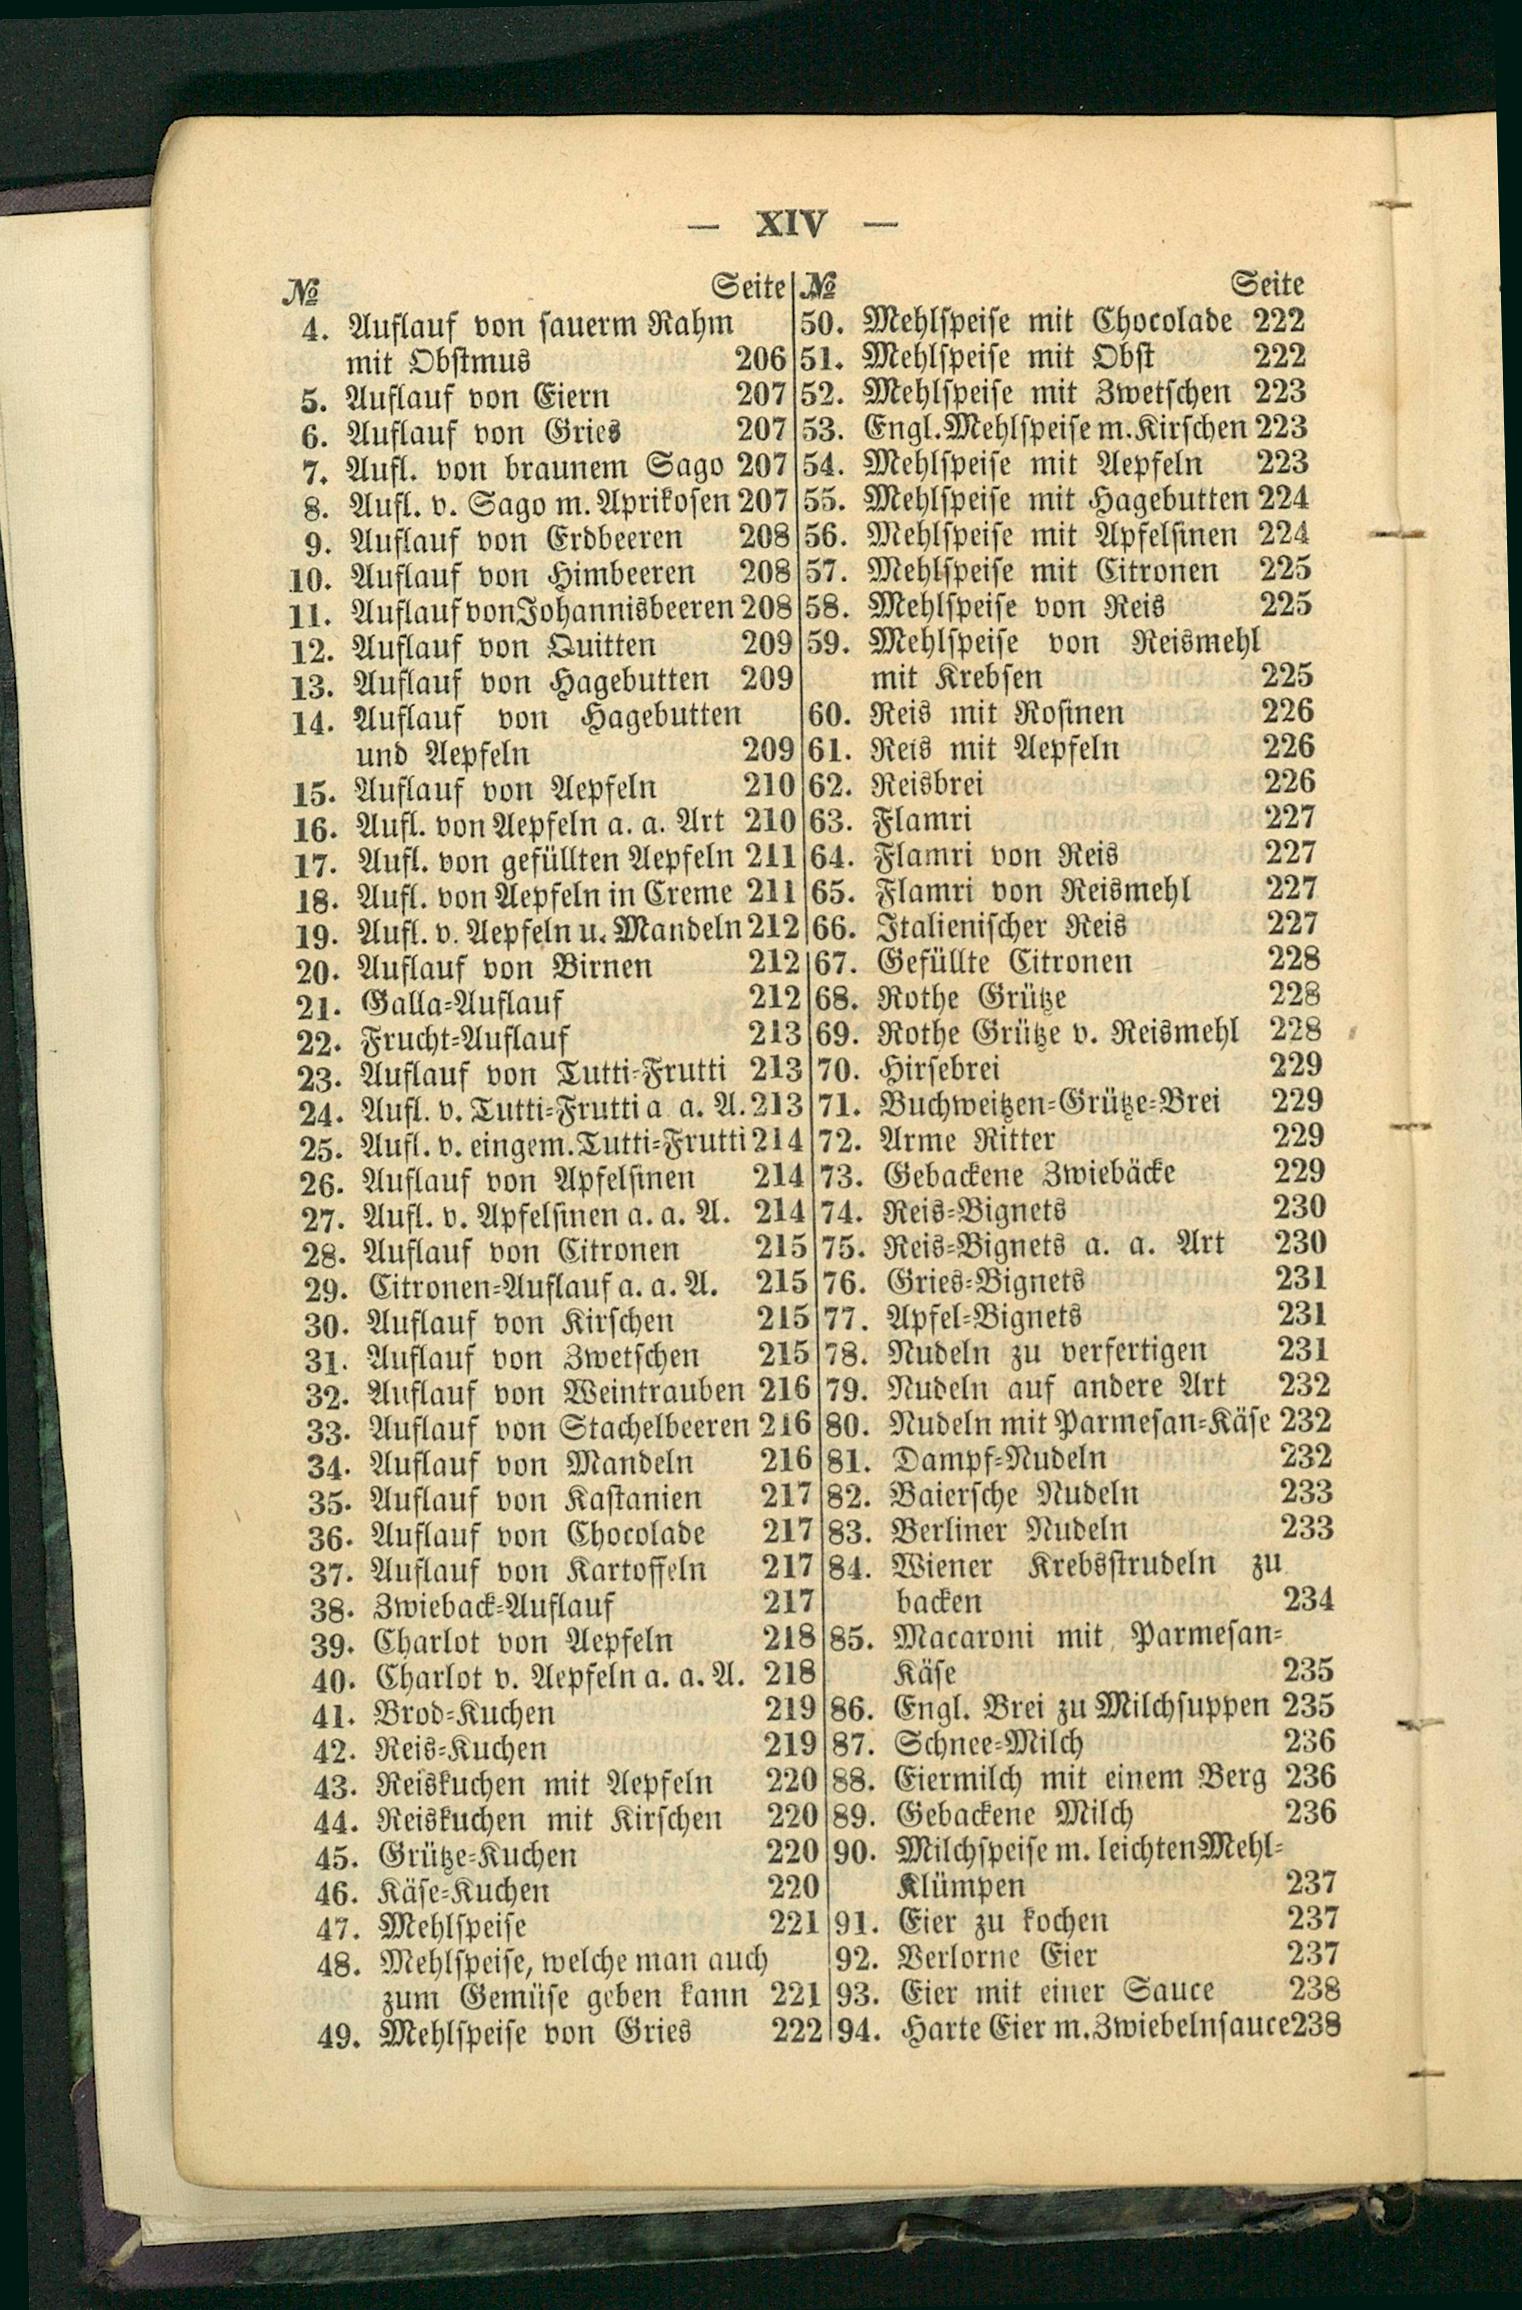 — XIV —
№ Seite
4. Auflauf von sauerm Rahm
mit Obstmus 206
5. Auflauf von Eiern 207
6. Auflauf von Gries 207
7. Aufl. von braunem Sago 207
8. Aufl. v. Sago m. Aprikosen 207
9. Auflauf von Erdbeeren 208
10. Auflauf von Himbeeren 208
11. Auflauf von Johannisbeeren 208
12. Auflauf von Quitten 209
13. Auflauf von Hagebutten 209
14. Auflauf von Hagebutten
und Aepfeln 209
15. Auflauf von Aepfeln 210
16. Aufl. von Aepfeln a. a. Art 210
17. Aufl. von gefüllten Aepfeln 211
18. Aufl. von Aepfeln in Creme 211
19. Aufl. v. Aepfeln u. Mandeln 212
20. Auflauf von Birnen 212
21. Galla-Auflauf 212
22. Frucht-Auflauf 213
23. Auflauf von Tutti-Frutti 213
24. Aufl. v. Tutti-Frutti a a. A. 213
25. Aufl. v. eingem. Tutti-Frutti 214
26. Auflauf von Apfelsinen 214
27. Aufl. v. Apfelsinen a. a. A. 214
28. Auflauf von Citronen 215
29. Citronen-Auflauf a. a. A. 215
30. Auflauf von Kirschen 215
31. Auflauf von Zwetschen 215
32. Auflauf von Weintrauben 216
33. Auflauf von Stachelbeeren 216
34. Auflauf von Mandeln 216
35. Auflauf von Kastanien 217
36. Auflauf von Chocolade 217
37. Auflauf von Kartoffeln 217
38. Zwieback-Auflauf 217
39. Charlot von Aepfeln 218
40. Charlot v. Aepfeln a. a. A. 218
41. Brod-Kuchen 219
42. Reis-Kuchen 219
43. Reiskuchen mit Aepfeln 220
44. Reiskuchen mit Kirschen 220
45. Grütze-Kuchen 220
46. Käse-Kuchen 220
47. Mehlspeise 221
48. Mehlspeise, welche man auch
zum Gemüse geben kann 221
49. Mehlspeise von Gries 222
№ Seite
50. Mehlspeise mit Chocolade 222
51. Mehlspeise mit Obst 222
52. Mehlspeise mit Zwetschen 223
53. Engl. Mehlspeise m. Kirschen 223
54. Mehlspeise mit Aepfeln 223
55. Mehlspeise mit Hagebutten 224
56. Mehlspeise mit Apfelsinen 224
57. Mehlspeise mit Citronen 225
58. Mehlspeise von Reis 225
59. Mehlspeise von Reismehl
mit Krebsen 225
60. Reis mit Rosinen 226
61. Reis mit Aepfeln 226
62. Reisbrei 226
63. Flamri 227
64. Flamri von Reis 227
65. Flamri von Reismehl 227
66. Italienischer Reis 227
67. Gefüllte Citronen 228
68. Rothe Grütze 228
69. Rothe Grütze v. Reismehl 228
70. Hirsebrei 229
71. Buchweitzen-Grütze-Brei 229
72. Arme Ritter 229
73. Gebackene Zwiebäcke 229
74. Reis-Bignets 230
75. Reis-Bignets a. a. Art 230
76. Gries-Bignets 231
77. Apfel-Bignets 231
78. Nudeln zu verfertigen 231
79. Nudeln auf andere Art 232
80. Nudeln mit Parmesan-Käse 232
81. Dampf-Nudeln 232
82. Baiersche Nudeln 233
83. Berliner Nudeln 233
84. Wiener Krebsstrudeln zu
backen 234
85. Macaroni mit Parmesan-
Käse 235
86. Engl. Brei zu Milchsuppen 235
87. Schnee-Milch 236
88. Eiermilch mit einem Berg 236
89. Gebackene Milch 236
90. Milchspeise m. leichten Mehl-
Klümpen 237
91. Eier zu kochen 237
92. Verlorne Eier 237
93. Eier mit einer Sauce 238
94. Harte Eier m. Zwiebelnsauce 238